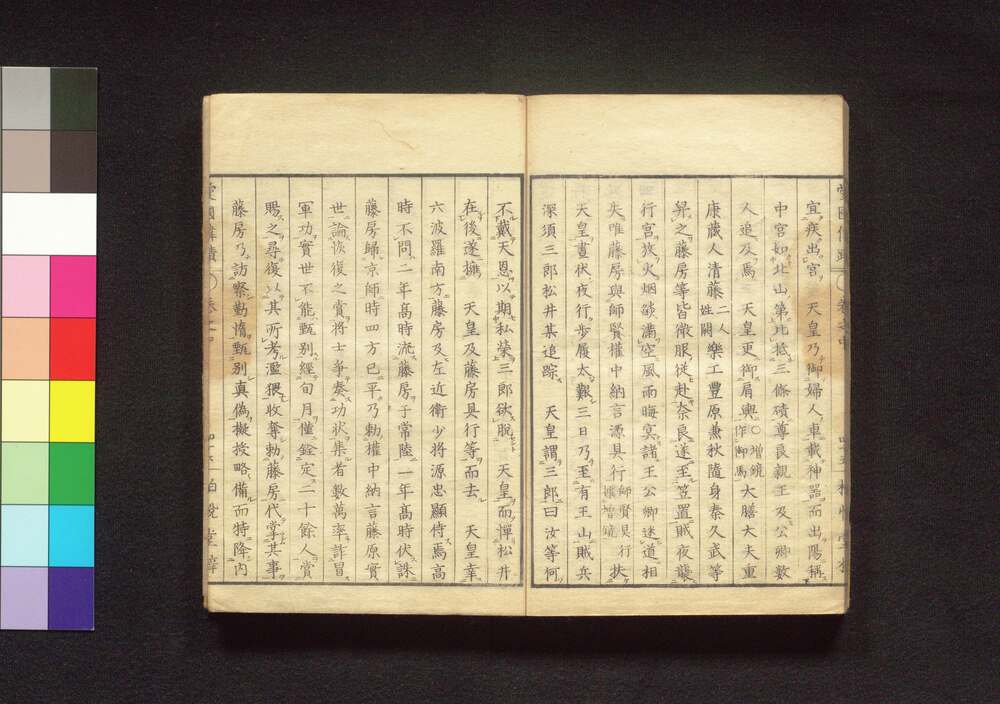 宜疾出宮 天皇乃御婦人車載神器而出陽稱
中宮如北山第比抵三條磧尊良親王及公卿數
人追及焉 天皇更御肩輿 ○增鏡作御馬 大膳大夫重
康藏人清藤 二人姓闕 樂工豐原兼秋隨身秦久武等
舁之藤房等皆微服從赴奈良遂至笠置賊夜襲
行宮放火烟燄滿空風雨晦冥諸王公卿迷道相
失唯藤房與師賢權中納言源具行 師賢具行據增鏡 扶
天皇晝伏夜行步履太艱三日乃至有王山賊兵
深須三郎松井某追踪 天皇謂三郎曰汝等何
不戴天恩以期私榮三郎欲脫 天皇而憚松井
在後遂擁 天皇及藤房具行等而去 天皇幸
六波羅南方藤房及左近衛少將源忠顯侍焉高
時不問二年高時流藤房于常陸一年高時伏誅
藤房歸京師時四方已平乃勅權中納言藤原實
世論恢復之賞將士爭奏功狀集者數萬率詐冒
軍功實世不能甄别經旬月僅銓定二十餘人賞
賜之尋復以其所考濫猥收奪勅藤房代掌其事
藤房乃訪察勤惰甄别真偽擬授略備而特降內